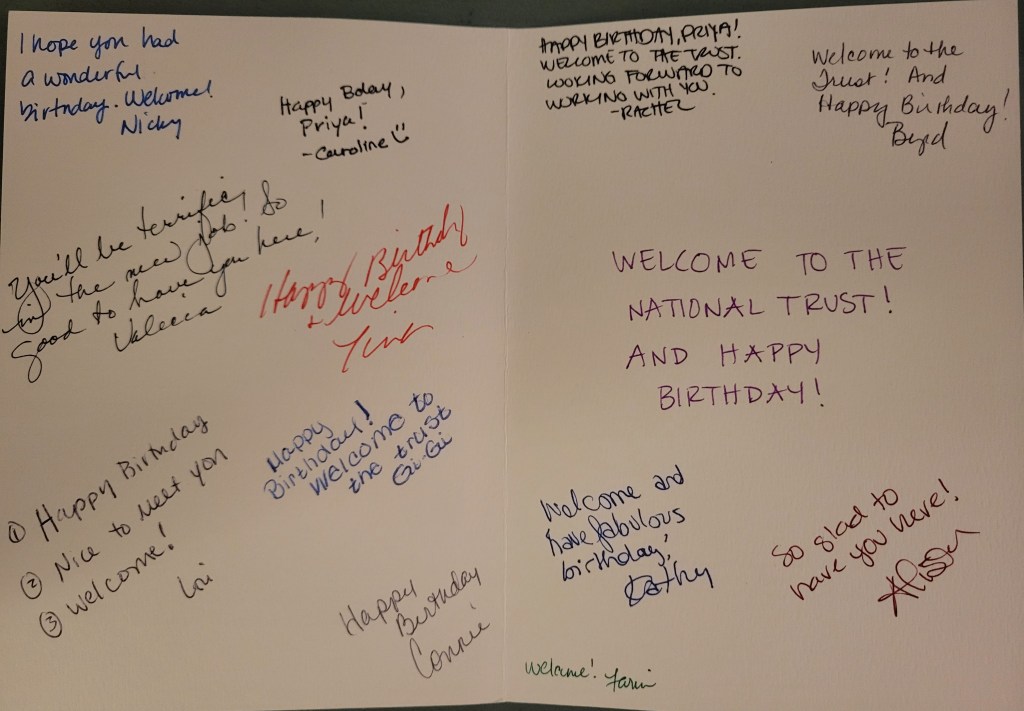 I hope you had
a wonderful
birthday. Welcome!
Nicky
Happy Bday,
Priya!
-Caroline
You'll be terrific
in the new job. So
good to have you here!
Valecia
Happy Birthday
+ Welcome
Tina
① Happy Birthday
② Nice to meet you
③ Welcome!
Lori
Happy
Birthday!
Welcome to
the trust
Gi-Gi
Happy
Birthday
Connie
HAPPY BIRTHDAY, PRIYA!
WELCOME TO THE TRUST.
LOOKING FORWARD TO
WORKING WITH YOU.
-RACHEL
Welcome to the
Trust! And
Happy Birthday!
Byrd
WELCOME TO THE
NATIONAL TRUST!
AND HAPPY
BIRTHDAY!
Welcome and
have fabulous
birthday,
Kathy
So glad to
have you here!
Alison
Welcome!